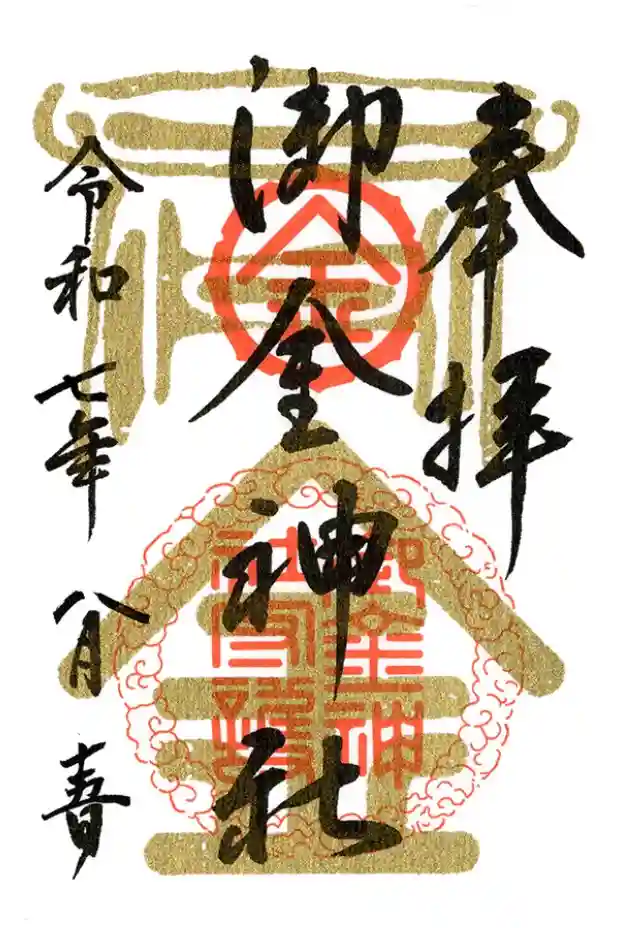 奉拝
御金神社
令和七年八月
金
御金神
社